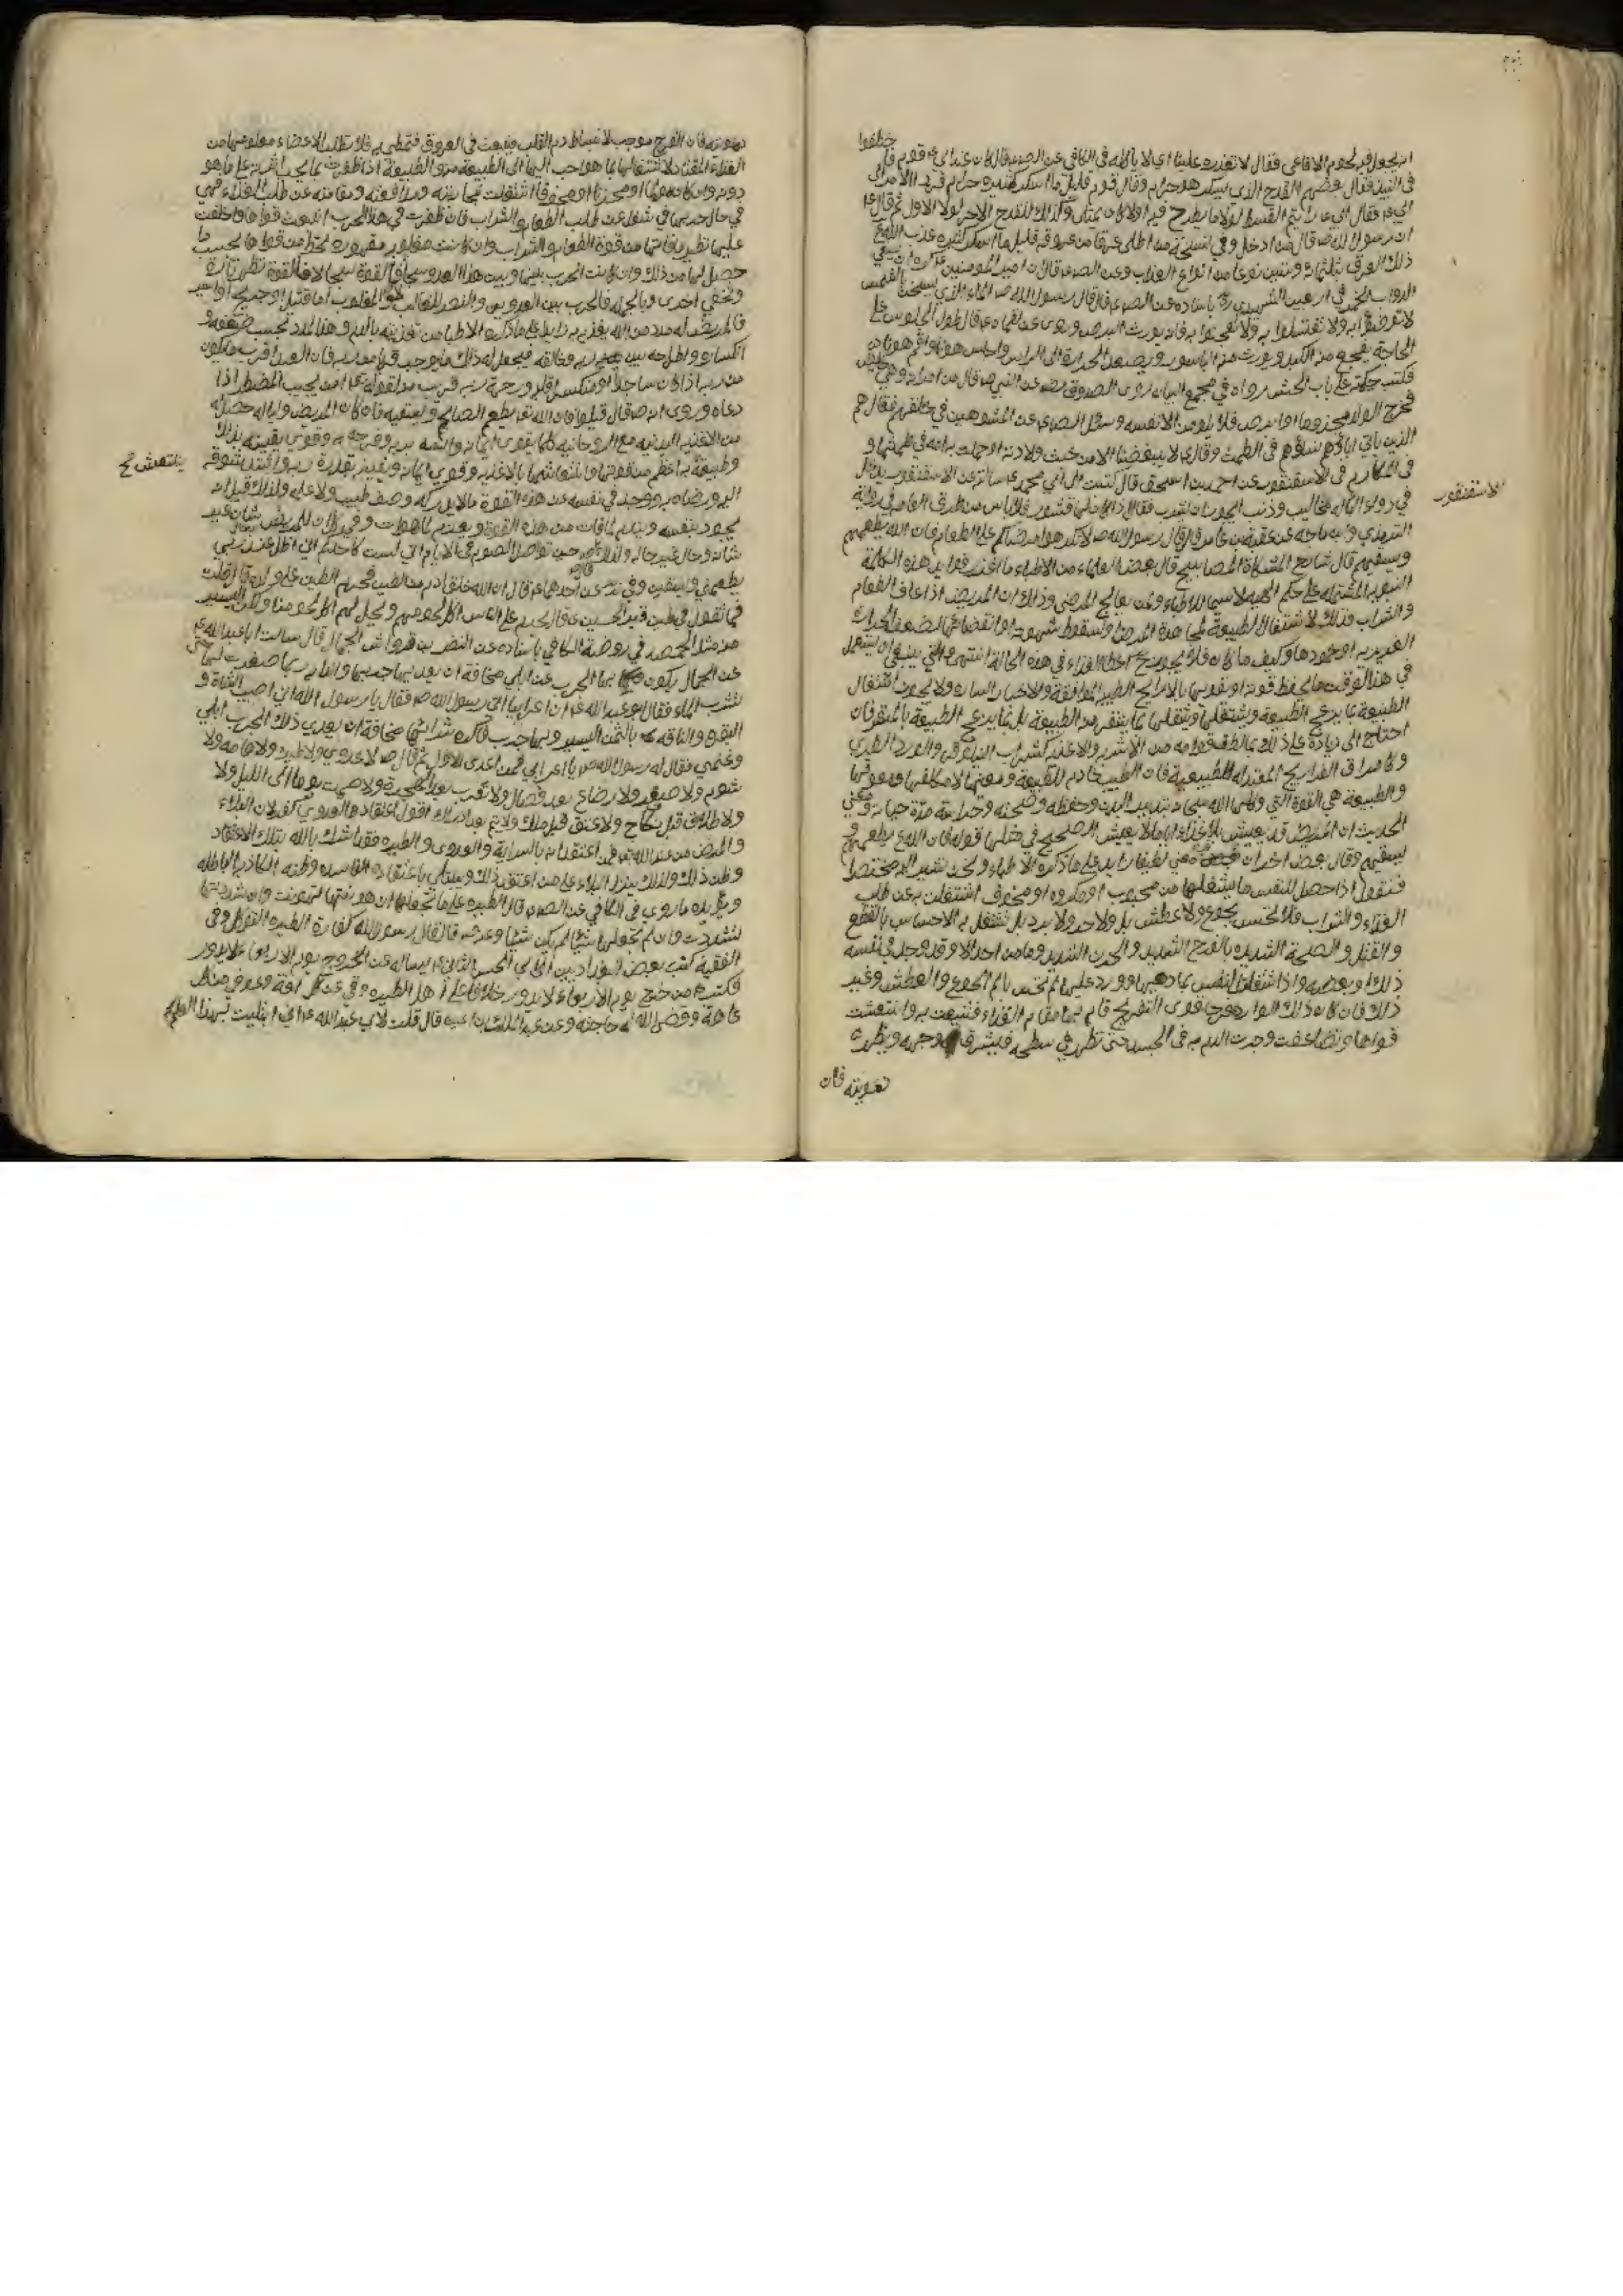 خلطوا
ان يجعل فيه لحوم الافاعي فقال لا تقدره علينا اي لا بالله في الكافي عن الصم قال كان عند ابي قوم
في النبيذ فقال بعضهم القدح الذي يسكر هو حرام وقال قوم قليل ما اسكر كثيره حرام فردوا الامر الى
ابي فقال ابي القسط لولا ما يطرح فيه اولا كان يمتلي وكذلك القدح الاخر لولا الاول ثم قال
ان رسول الله ص قال من ادخل وفي نسخة من عرقا من عروقه قليل ما اسكر كثيره عذب الله
ذلك العرق بثلثمائة وستين نوعا من انواع العذاب وعن الصم قال ان امير المؤمنين كره ان يسقى
الدواب الخمر في اربعين الشهيد باسناده عن الصم قال قال رسول الله ص الماء الذي يسخن الشمس
لا توضؤا به ولا تغتسلوا به ولا تعجنوا به فانه يورث البرص وروي عن لقمان قال طول الجلوس على
الحاجة يفجع منه الكبد ويورث منه الباسور ويصعد الحرارة الى الراس واجلس هونا وقم هونا
فكتب حكمته على باب الحش رواه في مجمع البيان روى الصدوق عن النبي ص قال من امراته وهي حايض
فخرج الولد مجذوما او ابرص فلا يلومن الا نفسه وسئل الصم عن المشوهين في خلقهم فقال هم
الذين ياتي اباؤهم نساؤهم في الطمث وقال لا يبغضنا الا من خبث ولادته او حملت به امه في طمثها و
في المكارم في الاسقنقور عن احمد بن اسحق قال كتبت الى ابي محمد سالته عن الاسقنقور يدخل
الاسقنقور
في دواء الباه له مخاليب وذنب ايجوز ان يشرب فقال اذا كان لها قشور فلا باس من طرق العامه في رواية
الترمذي وابن ماجه عن عقبة بن عامر قال قال رسول الله ص لا تكرهوا مرضاكم على الطعام فان الله يطعمهم
ويسقيهم قال شارح المشكاة المصابيح قال بعض العلماء من الاطباء ما اغزر فوايد هذه الكلمة
النبوية المشتملة على حكم الهية لا سيما للاطباء ولمن يعالج المرضى وذلك ان المريض اذا عاف الطعام
والشراب فذلك لاشتغال الطبيعة بمجاهدة المرض او لسقوط شهوته او نقصانها لضعف الحرارة
الغريزية او خمودها وكيف ما كان فلا يجوز ح اعطاء الغذاء في هذه الحالة انتهى والذي ينبغي ان يستعمل
في هذا الوقت ما يحفظ قوته او يقويها بالاراييح الطيبه الموافقة والاخبار الساره ولا يجوز اشتغال
الطبيعة بما يزعج الطبيعة ويشغلها وينقلها بما ينتقر منه الطبيعة بل بما يزعج الطبيعة
احتاج الى زيادة على ذلك بما لطف قوامه من الاشربه والاغذيه كشراب النيلوفر والورد الطري
وكامراق الفراريج المعتدلة الطبيعية فان الطبيب خادم للطبيعة ومعينها
والطبيعة هي القوة التي وكلها الله سبحانه بتدبير البدن وحفظه وصحته وحراسته مدة حياته ومعنى
الحديث ان المريض قد يعيش بلا غذاء اياما لا يعيش الصحيح في مثلها قوله فان الله يطعمهم و
يسقيهم وقال بعض اخر ان معنى لطيفا زايد على ما ذكره الاطباء ونحن نشير اليه مختصرا
فنقول اذا حصل للنفس ما يشغلها من محبوب او مكروه او مخوف اشتغلت به عن طلب
الغذاء والشراب فلا تحس بجوع ولا عطش بل ولا حر ولا برد بل تشتغل به الاحساس بالقطع
والقتل و الشديده بالفرح الشديد والحزن الشديد وما من احد الا وقد وجد في نفسه
ذلك او بعضه واذا اشتغلت النفس بما دهمها وورد عليها لم تحس بالم الجوع والعطش وغير
ذلك فان كان ذلك الوارد مفرحا قوي التفريح قام لها مقام الغذاء فتشبعت به وانتعشت
قواها وتضاعفت وجرت الدم به في الجسد حتى تظهر في سطحه فيشرق وجهه ويظهر
دمويته فان
دمويته فان الفرح يوجب لانبساط دم القلب فينبعث في العروق فتمتلي به فلا تطلب الاعضاء معلومها من
الغذاء المعتاد لاشتغالها بما هو احب اليها الى الطبيعة منه والطبيعة اذا ظفرت بما يحب اثرته على ما هو
دونه وان كان مولما او محزنا او مخوفا اشتغلت بمحاربته ومدافعته ومقاومته عن طلب الغذاء فهي
في حال حربها في شغل عن طلب الطعام والشراب فان ظفرت في هذا الحرب انتعشت قواها واخلفت
عليها نظير ما فاتها من قوة الطعام والشراب وان كانت مغلوبه مقهوره انحطت قواها بحسب ما
حصل لها من ذلك وان كانت الحرب بينها وبين هذا العدو سجالا فالقوة تظهر تارة
وتخفى اخرى وبالجمله فالحرب بين العدوين والنصر للغالب والمغلوب اما قتيل او جريح او اسير
فالمريض له مدد من الله يغذيه به زايد على ما ذكره الاطباء من تغذيته بالدم وهذا المدد بحسب ضعفه و
انكساره واطراحه بين يدي ربه وخالقه فيحصل له ذلك ما يوجب قربا من ربه فان العبد اقرب ما يكون
من ربه اذا كان ساجدا او منكسر القلب ورحمة ربه قريب منه لقوله تعالى امن يجيب المضطر اذا
دعاه وروي انه ص قال قيلوا فان الله تعالى يطعم الصائم ويسقيه فان كان المريض وليا له حصل له
من الاغذيه البدنيه مع الروحانيه كلما يقوى ايمانه وانسه بربه وفرحه به وقوي يقينه بذلك
وطبيعة به اعظم من قوتها وانتعاشها بالاغذيه وقوى ايمانه ويقينه بقدرة ربه واشتد شوقه
ينتعش خ
اليه ورضاه به ووجد في نفسه من هذه القوة ما لا يدركه وصف طبيب ولا علمه ولذلك قيل انه
يجود بنفسه ويندم لما فات من هذه القوة وبعدم للمريض شان غير
شان وحال غير حاله ولذلك قال ص حين تواصل الصوم في الايام اني لست كاحدكم اني اظل عند ربي
يطعمني ويسقيني وفي عن احدهما قال ان الله خلق ادم من الطين فحرم الطين على ولده قال قلت
فما تقول في طين قبر الحسين قال يحرم على الناس اكل لحومهم ويحل لهم اكل لحومنا ولكن اليسير
منه مثل الحمصه في روضة الكافي باسناده عن النضر بن قرواش الجمال قال سالت ابا عبد الله
عن الجمال يكون بها الجرب عن ابلي مخافة ان يعديها جربها والدابه ربما صفرت لها حتى
تشرب الماء فقال ابو عبد الله ان اعرابيا اتى رسول الله ص فقال يا رسول الله اني اصيب الشاة و
البقره والناقة بالثمن اليسير وبها جرب فاكره شرائها مخافة ان يعدي ذلك الجرب ابلي
وغنمي فقال له رسول الله ص يا اعرابي فمن اعدى الاول ثم قال ص لا عدوى ولا طيره ولا هامه ولا
شوم ولا صفر ولا رضاع بعد فصال ولا تعرب بعد الهجرة ولا صمت يوما الى الليل ولا
ولا طلاق قبل نكاح ولا عتق قبل ملك ولا يتم بعد ادراك اقول اعتقاد العدوى كفر لان البلاء
والمرض من عند الله فمن اعتقد بالسراية والعدوى والطيره فقد اشرك بالله بتلك الاعتقاد
وظن ذلك ولذلك ينزل البلاء على من اعتقد ذلك ويبتلي باعتقاده الفاسده وظنه الكاذبه الباطله
ويؤيده ما روي في الكافي عن الصم قال الطيره على ما تجعلها ان هونتها تهونت وان شددتها
تشددت وان لم تجعلها شيئا لم يكن شيئا وعنه قال قال رسول الله كفارة الطيره التوكل وفي
الفقيه كتب بعض البغداديين الى ابي الحسن الثاني يساله عن الخروج يوم الاربعاء لا يدور
فكتب من خرج يوم الاربعاء لا يدور خلافا على اهل الطيره وقي من كل افة وعوفي من كل
عاهة وقضى الله له حاجته وعن عبد الملك بن اعين قال قلت لابي عبد الله اني ابتليت بهذا العلم